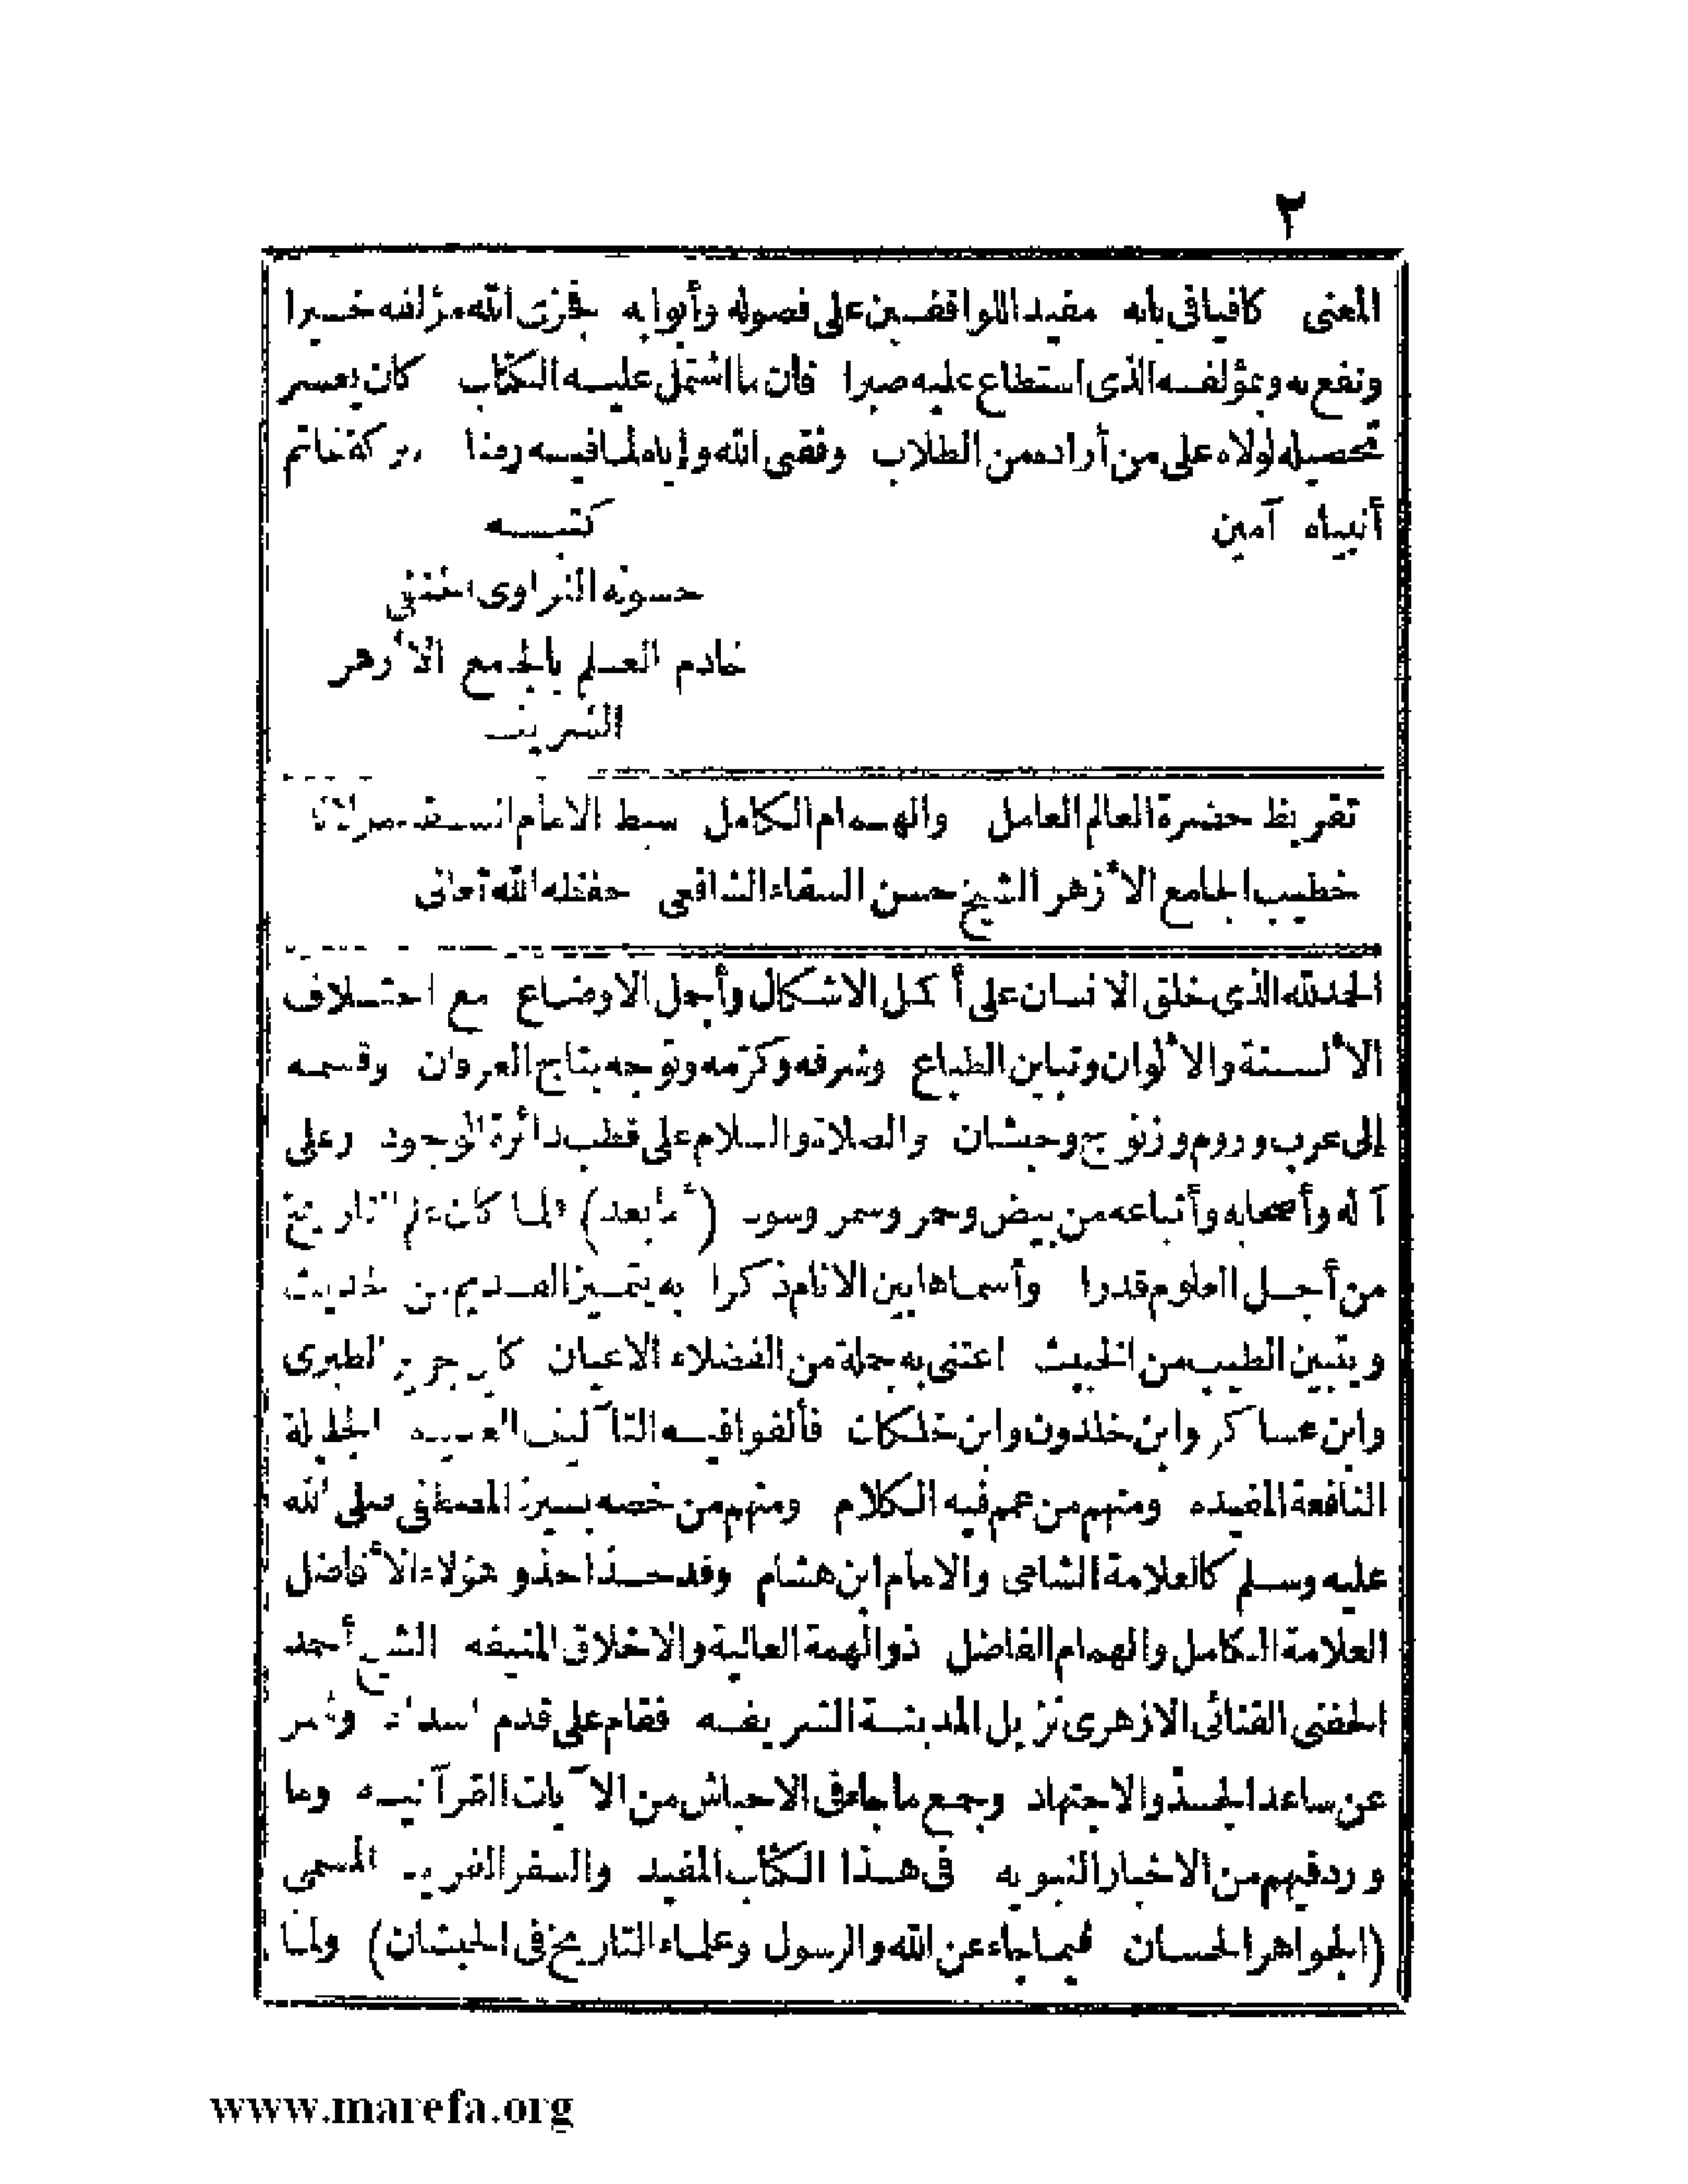 ٢
المعنى كافيا فى بابه مفيد اللواقفين على فصوله وأبوابه فجزى الله مؤلفه خيرا
ونفع به وبمؤلفه الذى استطاع عليه صبرا فان ما اشتمل عليه الكتاب كان يعسر
تحصيله لولاه على من أراده من الطلاب وفقنى الله وإياه لما فيه رضاه ببركة خاتم
أنبياه آمين كتبه
حسونه النواوى الحنفى
خادم العلم بالجامع الأزهر
الشريف
تقريظ حضرة العالم العامل والهمام الكامل سبط الامام السقا مولانا
خطيب الجامع الأزهر الشيخ حسن السقاء الشافعى حفظه الله تعالى
الحمد لله الذى خلق الانسان على أكمل الاشكال وأجمل الاوضاع مع اختلاف
الألسنة والألوان وتباين الطباع وشرفه وكرمه وتوجه بتاج العرفان وقسمه
إلى عرب وروم وزنوج وحبشان والصلاة والسلام على قطب دائرة الوجود وعلى
آله وأصحابه وأتباعه من بيض وحمر وسمر وسود (أما بعد) فلما كان علم التاريخ
من أجل العلوم قدرا وأسماها بين الانام ذكرا به يتميز القديم من الحديث
ويتبين الطيب من الخبيث اعتنى به جملة من الفضلاء الاعيان كابن جرير الطبرى
وابن عساكر وابن خلدون وابن خلكان فألفوا فيه التآليف العديده الجليلة
النافعة المفيده ومنهم من عمم فيه الكلام ومنهم من خصه بسيرة المصطفى صلى الله
عليه وسلم كالعلامة الشامى والامام ابن هشام وقد حذا حذو هؤلاء الأفاضل
العلامة الكامل والهمام الفاضل ذو الهمة العالية والاخلاق المنيفه الشيخ أحمد
الحفنى القنائى الازهرى نزيل المدينة الشريفه فقام على قدم السداد وشمر
عن ساعد الجد والاجتهاد وجمع ما جاء فى الاحباش من الآيات القرآنيه وما
ورد فيهم من الاخبار النبويه فى هذا الكتاب المفيد والسفر الفريد المسمى
(الجواهر الحسان فيما جاء عن الله والرسول وعلماء التاريخ فى الحبشان) ولما
www.marefa.org